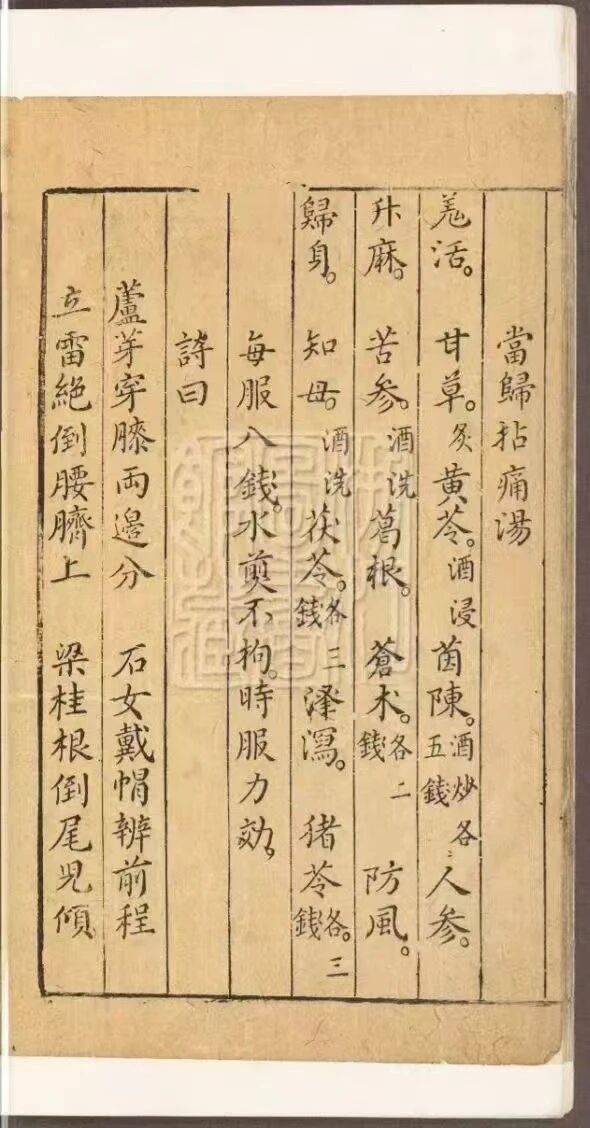 當歸拈痛湯
羗活。甘草。炙黄芩。酒浸茵陳。酒炒各五錢人参。
升麻。苦参。酒洗葛根。蒼朮。各二錢防風。
歸身。知母。酒洗茯苓。各三錢澤瀉。猪苓各三錢。
每服八錢。水煎不拘。時服力効。
詩曰
蘆芽穿膝両邉分 石女戴帽辨前程
立雷絶倒腰臍上 梁桂根倒尾児傾